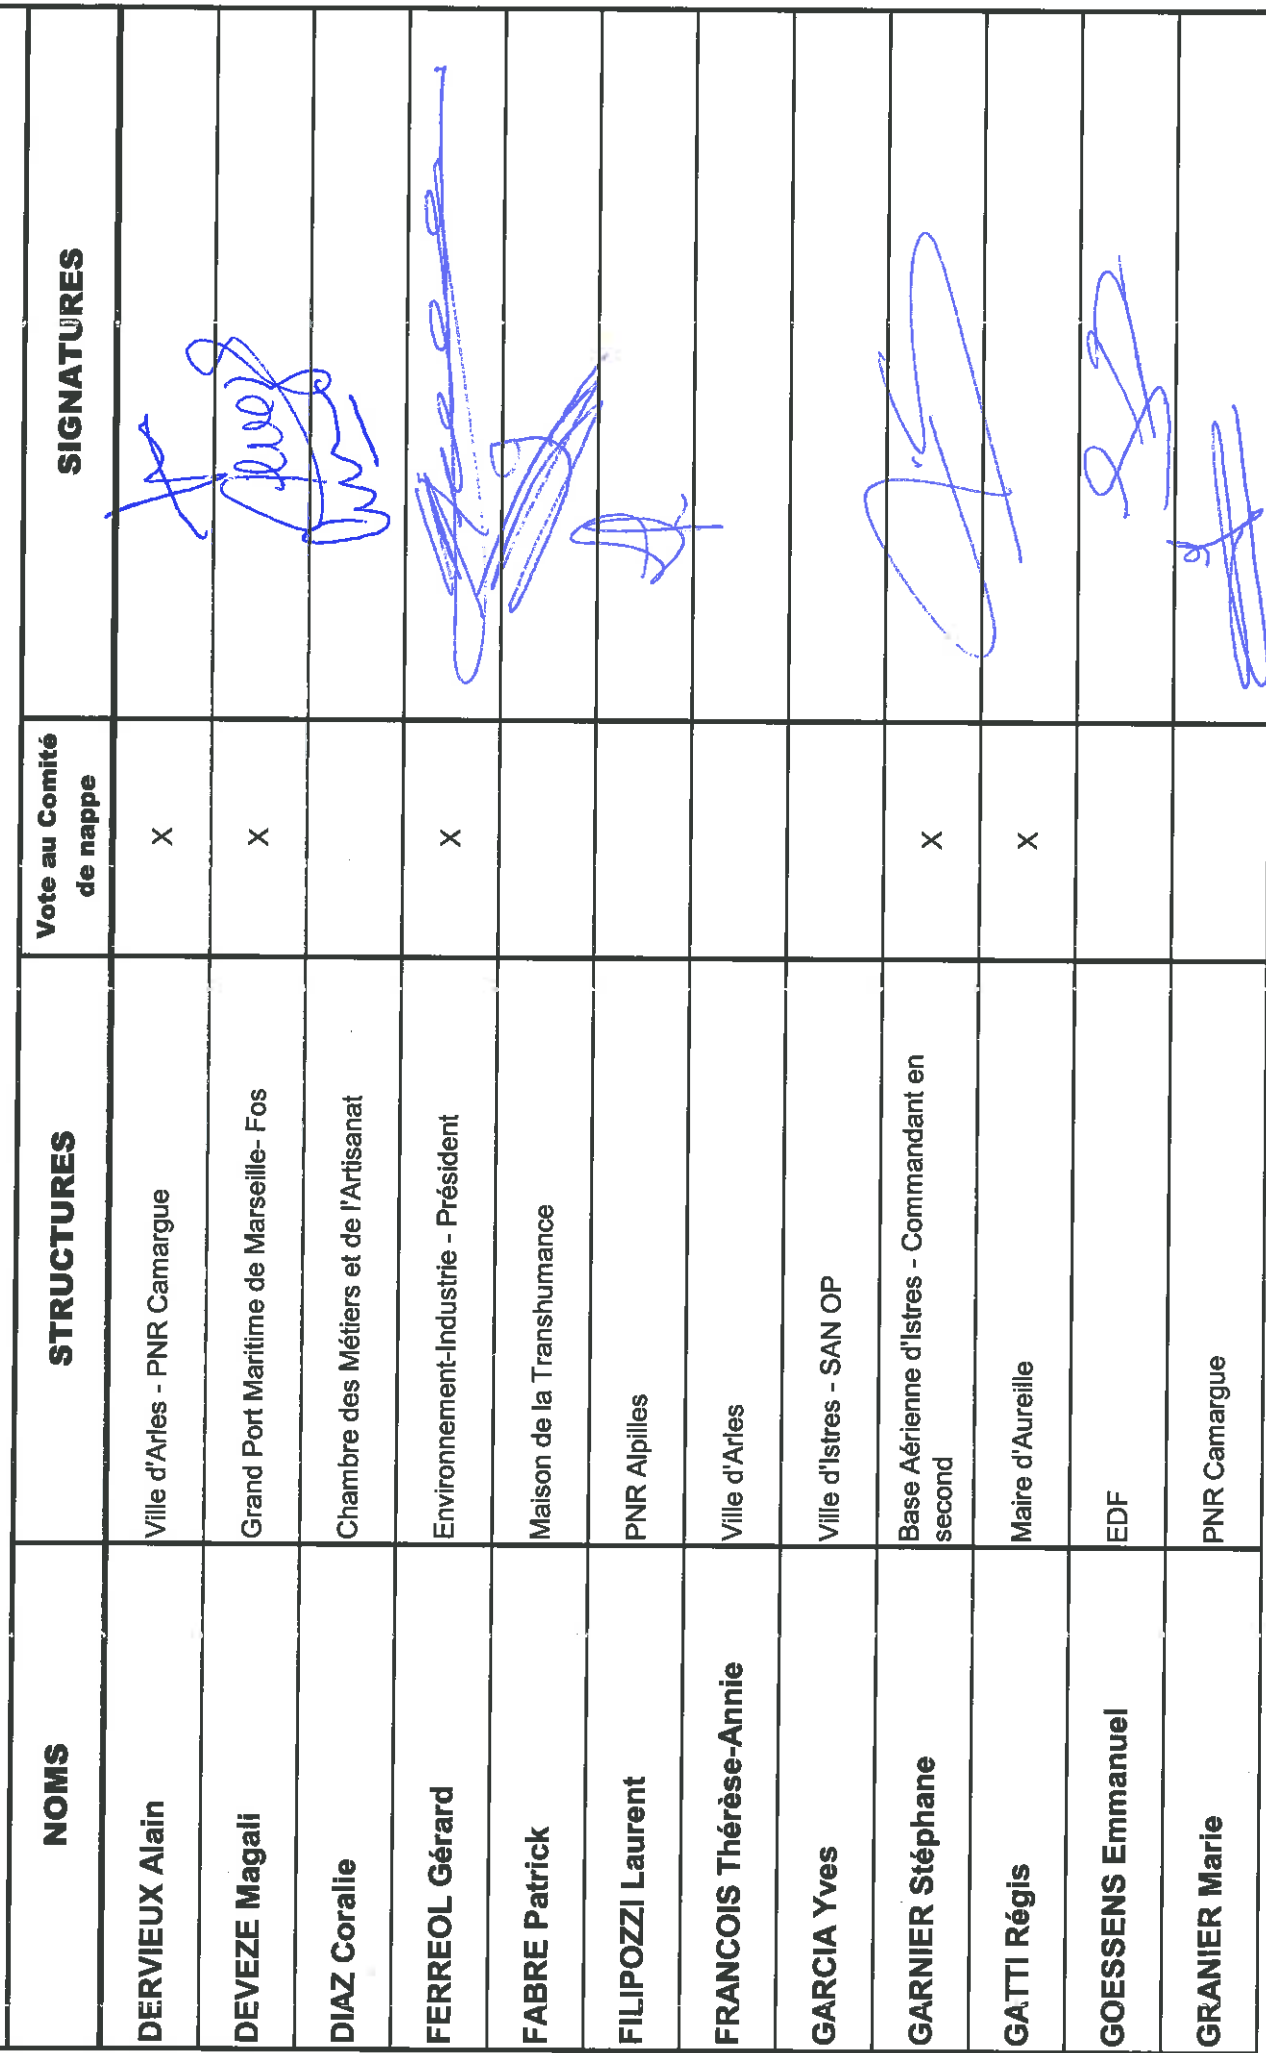 NOMS STRUCTURES Vote au Comité SIGNATURES
de nappe
DERVIEUX Alain Ville d'Arles - PNR Camargue X
DEVEZE Magali Grand Port Maritime de Marseille- Fos X
DIAZ Coralie Chambre des Métiers et de l'Artisanat
FERREOL Gérard Environnement-Industrie - Président X
FABRE Patrick Maison de la Transhumance
FILIPOZZI Laurent PNR Alpilles
FRANCOIS Thérèse-Annie Ville d'Arles
GARCIA Yves Ville d'Istres - SAN OP
GARNIER Stéphane Base Aérienne d'Istres - Commandant en X
second
GATTI Régis Maire d'Aureille X
GOESSENS Emmanuel EDF
GRANIER Marie PNR Camargue